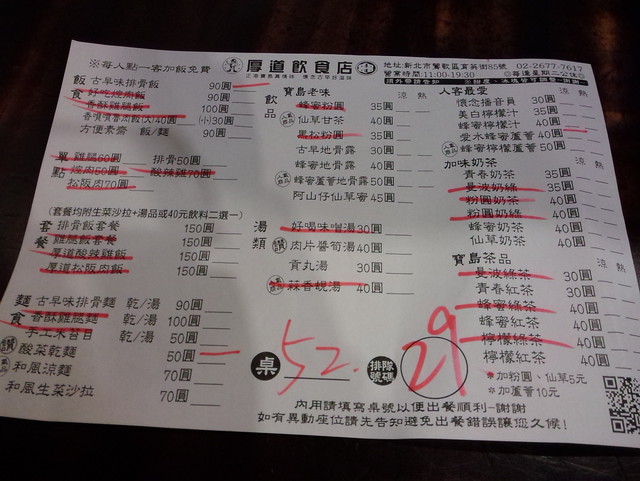 ※每人點一客加飯免費
厚道飲食店
地址:新北市鶯歌區育英街85號 02-2677-7617
營業時間:11:00-19:30 ◎每逢星期二公休◎
飯食
古早味排骨飯 90圓
好吃焢肉飯 90圓
香酥雞腿飯 100圓
香噴噴魯肉飯(大)40圓 (小)30圓
方便素齋 飯/麵 90圓
單點
雞腿60圓 排骨50圓
焢肉50圓 酸辣雞70圓
松阪肉70圓
(套餐均附生菜沙拉+湯品或40元飲料二選一)
套餐
排骨飯套餐 150圓
雞腿飯套餐 150圓
厚道酸辣雞飯 150圓
厚道松阪肉飯 150圓
麵食
古早味排骨麵 乾/湯 90圓
香酥雞腿麵 乾/湯 100圓
手工米苔目 乾/湯 50圓
酸菜乾麵 50圓
和風涼麵 70圓
和風生菜沙拉 70圓
飲品
寶島老味 涼 熱
蜂蜜粉圓 35圓
仙草甘茶 40圓
黑松粉圓 35圓
古早地骨露 30圓
蜂蜜地骨露 40圓
蜂蜜蘆薈地骨露 50圓
阿山仔仙草蜜 45圓
湯類
好喝味噌湯 30圓
肉片醬筍湯 40圓
貢丸湯 30圓
蒜香蜆湯 40圓
人客最愛 涼 熱
懷念播音員 30圓
美白檸檬汁 35圓
蜂蜜檸檬汁 40圓
愛水蜂蜜蘆薈 50圓
加味奶茶 涼 熱
青春奶茶 35圓
曼波奶綠 35圓
粉圓奶茶 40圓
粉圓奶綠 40圓
蜂蜜奶茶 40圓
仙草奶茶 40圓
寶島茶品 涼 熱
曼波綠茶 30圓
青春紅茶 30圓
蜂蜜綠茶 40圓
蜂蜜紅茶 40圓
檸檬綠茶 40圓
檸檬紅茶 40圓
※加粉圓、仙草5元
※加蘆薈10元
桌 52. 排隊號碼 29
內用請填寫桌號以便出餐順利-謝謝
如有異動座位請先告知避免出餐錯誤讓您久候!